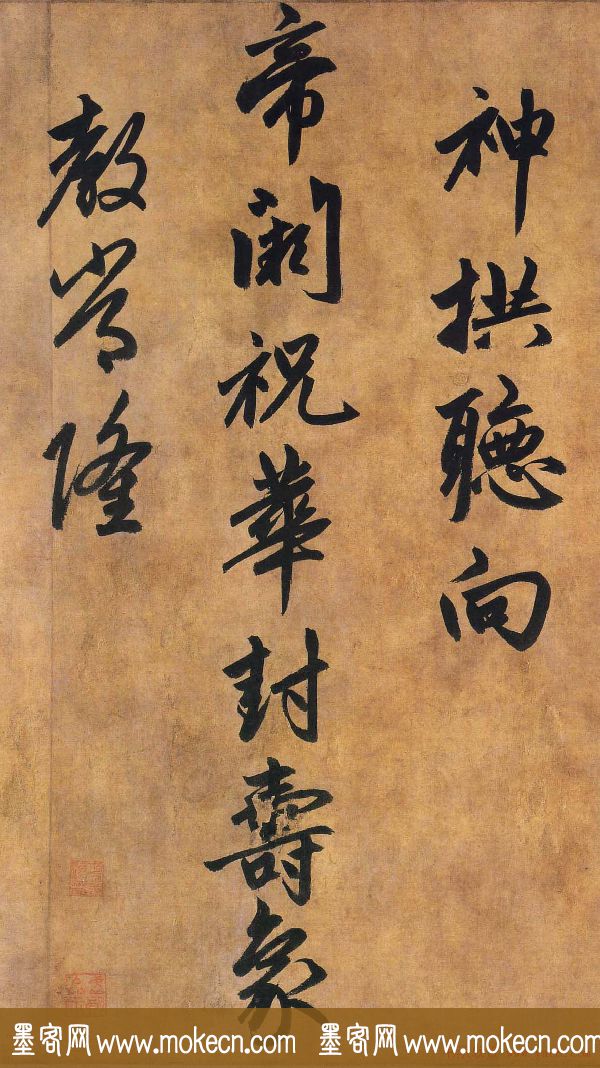 神拱聽向
帝闕祝華封壽象
教常隆
墨客网 www.mokecn.com 墨客网 www.mokecn.com